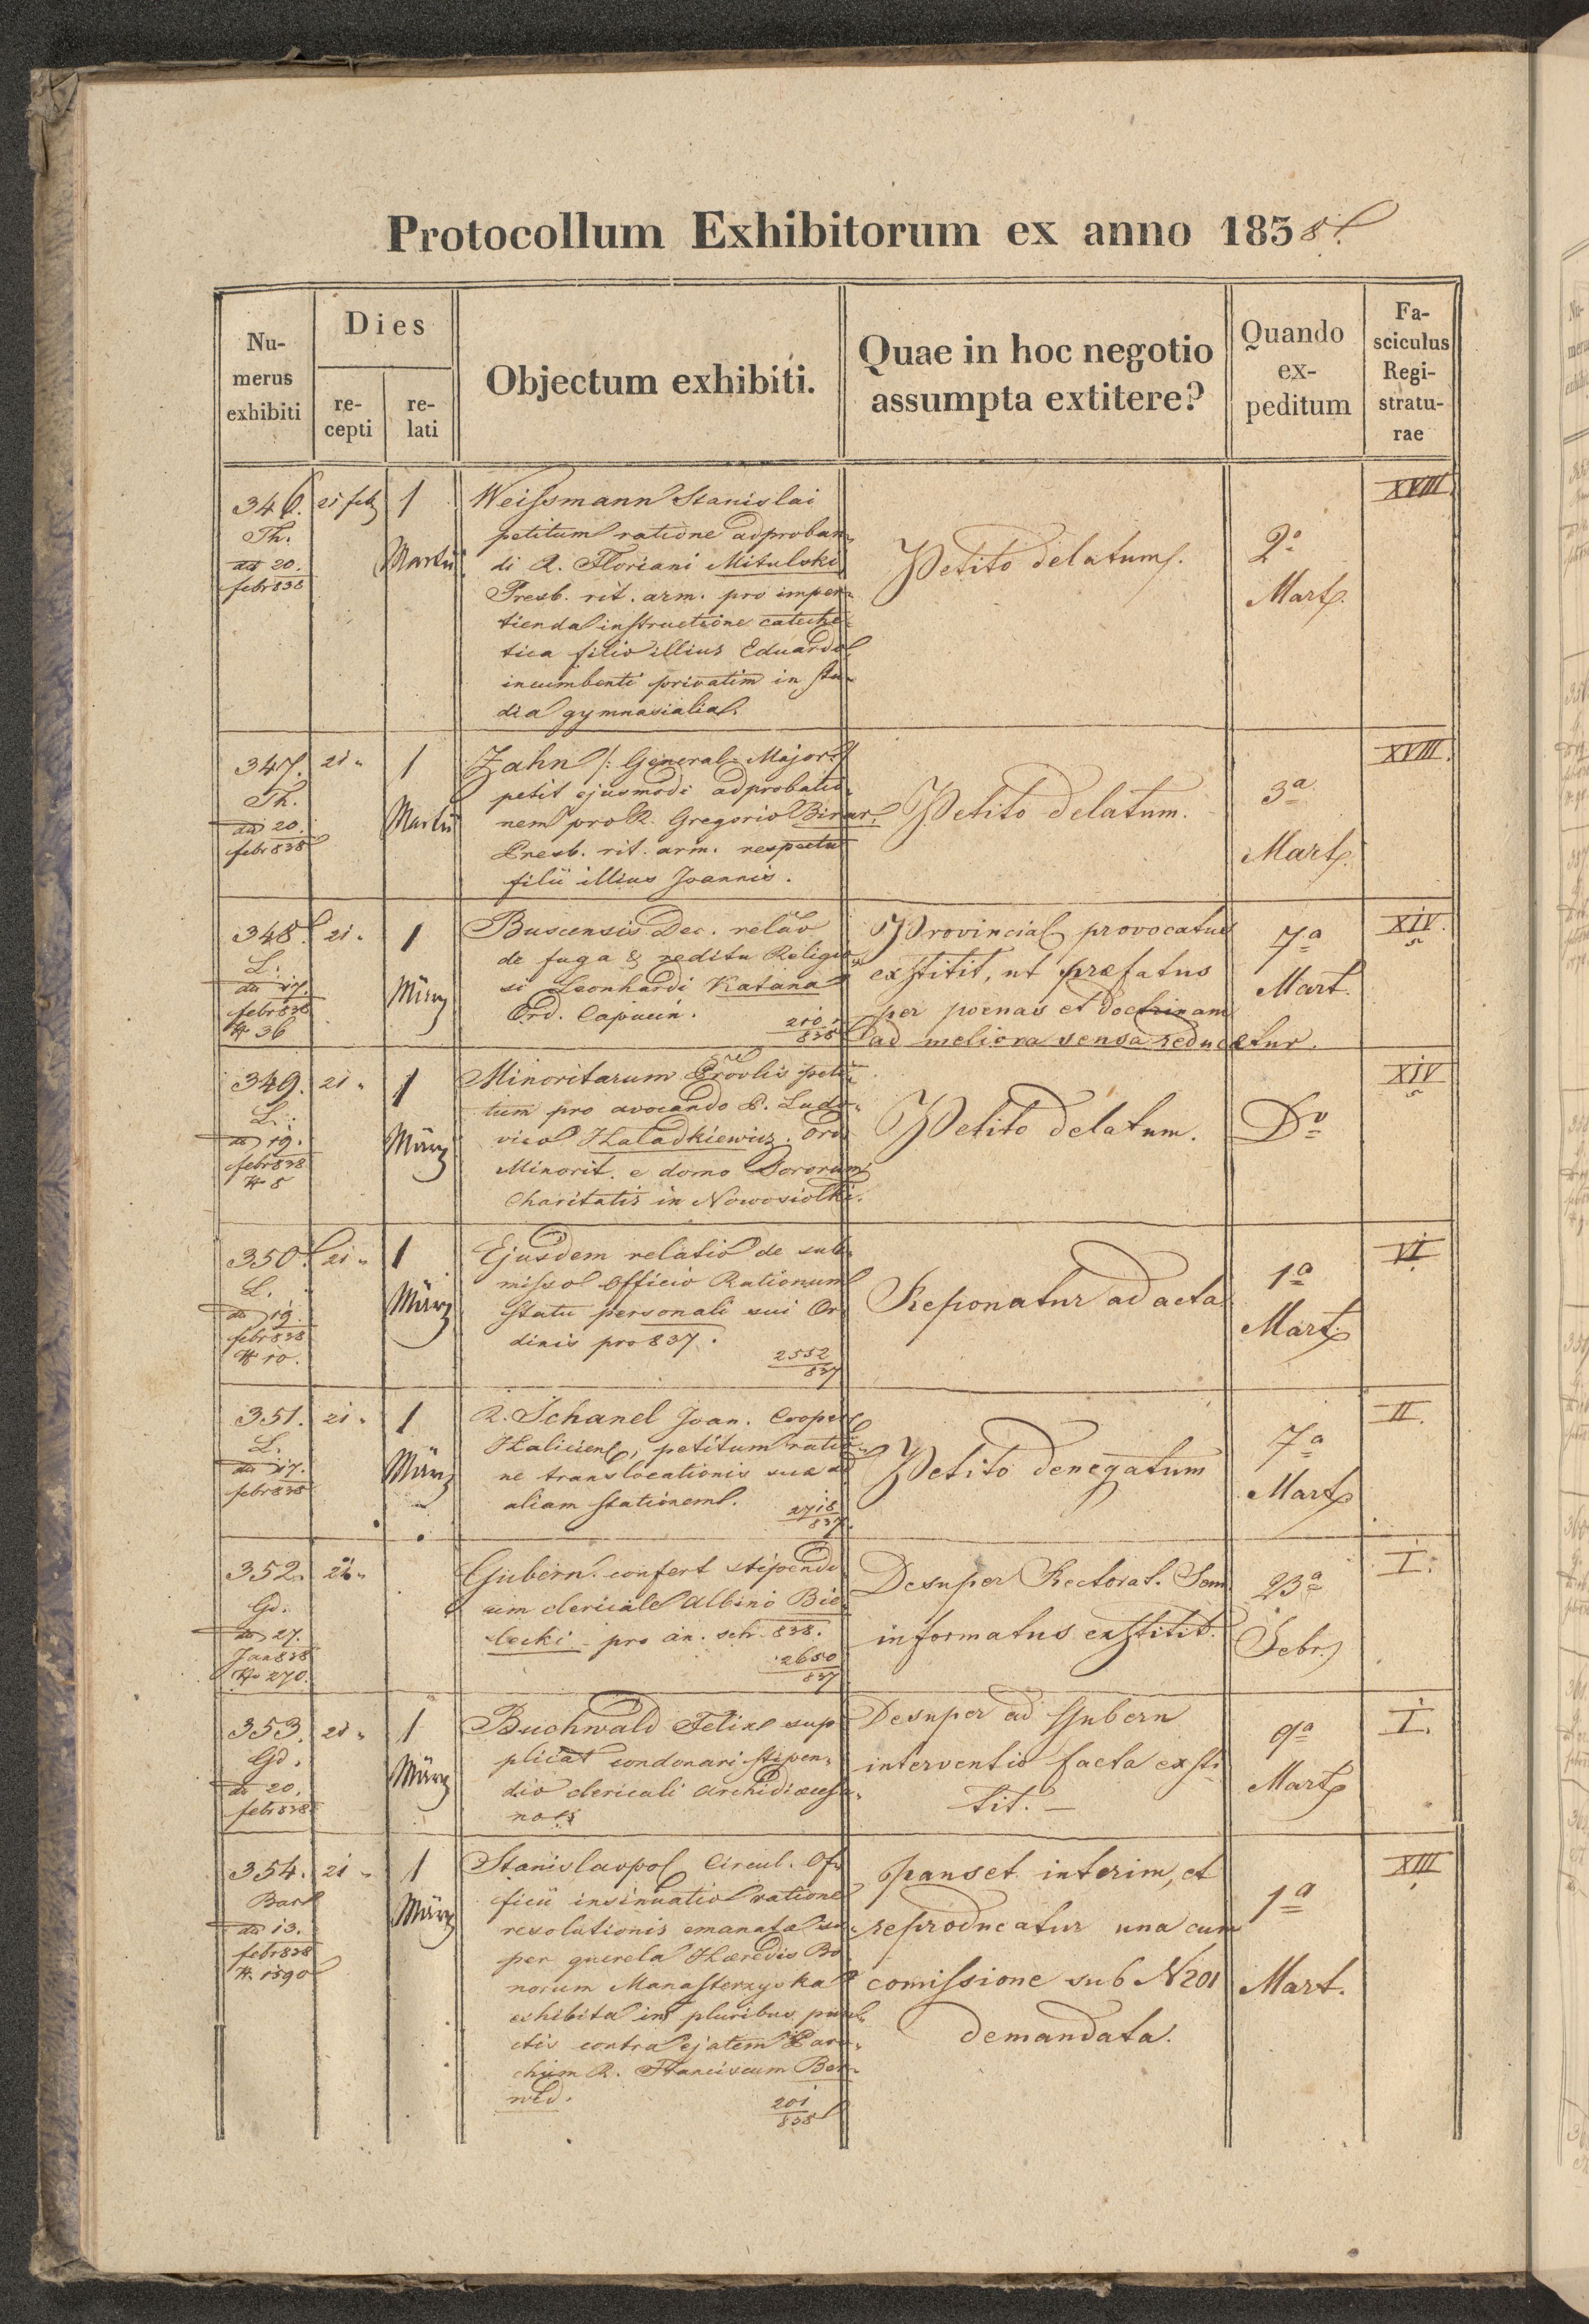 Protocollum Exhibitorum ex anno 1838.
Nu-
merus
exhibiti
Dies
re-
cepti
re-
lati
Objectum exhibiti.
Quae in hoc negotio
assumpta extitere?
Quando
ex-
peditum
Fa-
sciculus
Regi-
stratu-
rae
346.
Th.
dd 20.
febr 838
21 feb
1
Martii
Weissmann Stanislai
petitum ratione adproban-
di R. Floriani Mitulski
Presb. rit. arm. pro imper-
tienda instructione cateche-
tica filio illius Eduardo
incumbenti privatim in stu-
dia gymnasialia.
Petito delatum.
2a
Mart.
XVIII.
347.
Th.
dd 20.
febr 838
21 "
1
Martii
Zahn /: General-Major :/
petit ejusmodi adprobatio-
nem pro R. Gregorio Birar.
Presb. rit. arm. respectu
filii illius Joannis.
Petito delatum.
3a
Mart.
XVIII.
348.
L.
dd 17.
febr 838
N 36
21 "
1
März
Buscensis Dec. relao
de fuga & reditu Religio-
si Leonhardi Katana
Ord. Capucin.
210
838
Provincial provocatus
exstitit, ut præfatus
per poenas et doctrinam
ad meliora sensa reducatur.
7a
Mart.
XIV.
349.
L.
dd 19.
febr 838
N 8
21 "
1
März
Minoritarum Provlis peti-
tum pro avocando P. Ludo-
vico Haladkiewicz. Ord.
Minorit. e domo Sororum
Charitatis in Nowosiolki.
Petito delatum.
Do
XIV
350.
L.
dd 19.
febr 838
N 10.
21 "
1
März
Ejusdem relatio de sub-
misso Officio Rationum
Statu personali sui Or-
dinis pro 837.
2552
837
Reponatur ad acta
1a
Mart.
VI.
351.
L.
dd 17.
febr 838
21 "
1
März
R. Schanel Joan. Cooper.
Haliciens, petitum ratio-
ne translocationis suæ ad
aliam stationem.
2718
837.
Petito denegatum
7a
Mart.
II.
352.
Gd.
dd 27.
Jan 838
N 270.
Gubern. confert stipendi-
um clericale Albino Bie-
lecki pro an. sch. 838.
2650
837
Desuper Rectorat. Sem.
informatus exstitit.
23a
Febr.
I.
353.
Gd.
dd 20.
febr 838
21 "
1
März
Buchwald Felix sup-
plicat condonari stipen-
dio clericali Archidioecesa-
no
Desuper ad Gubern
interventio facta exsti-
tit. —
9a
Mart.
I.
354.
dd 13.
febr 838
N. 1590
21 "
1
März
Stanislaopol Circul. Of-
ficii insinuatio ratione
resolutionis emanatæ su-
per querela Hæredis Bo-
norum Manasterzyska
exhibita in pluribus pun-
ctis contra ejatem Paro-
chum R. Franciscum Ber-
wid.
201
838
panset interim, et
reproducatur una cum
comissione sub N 201
demandata.
1a
Mart.
XIII.